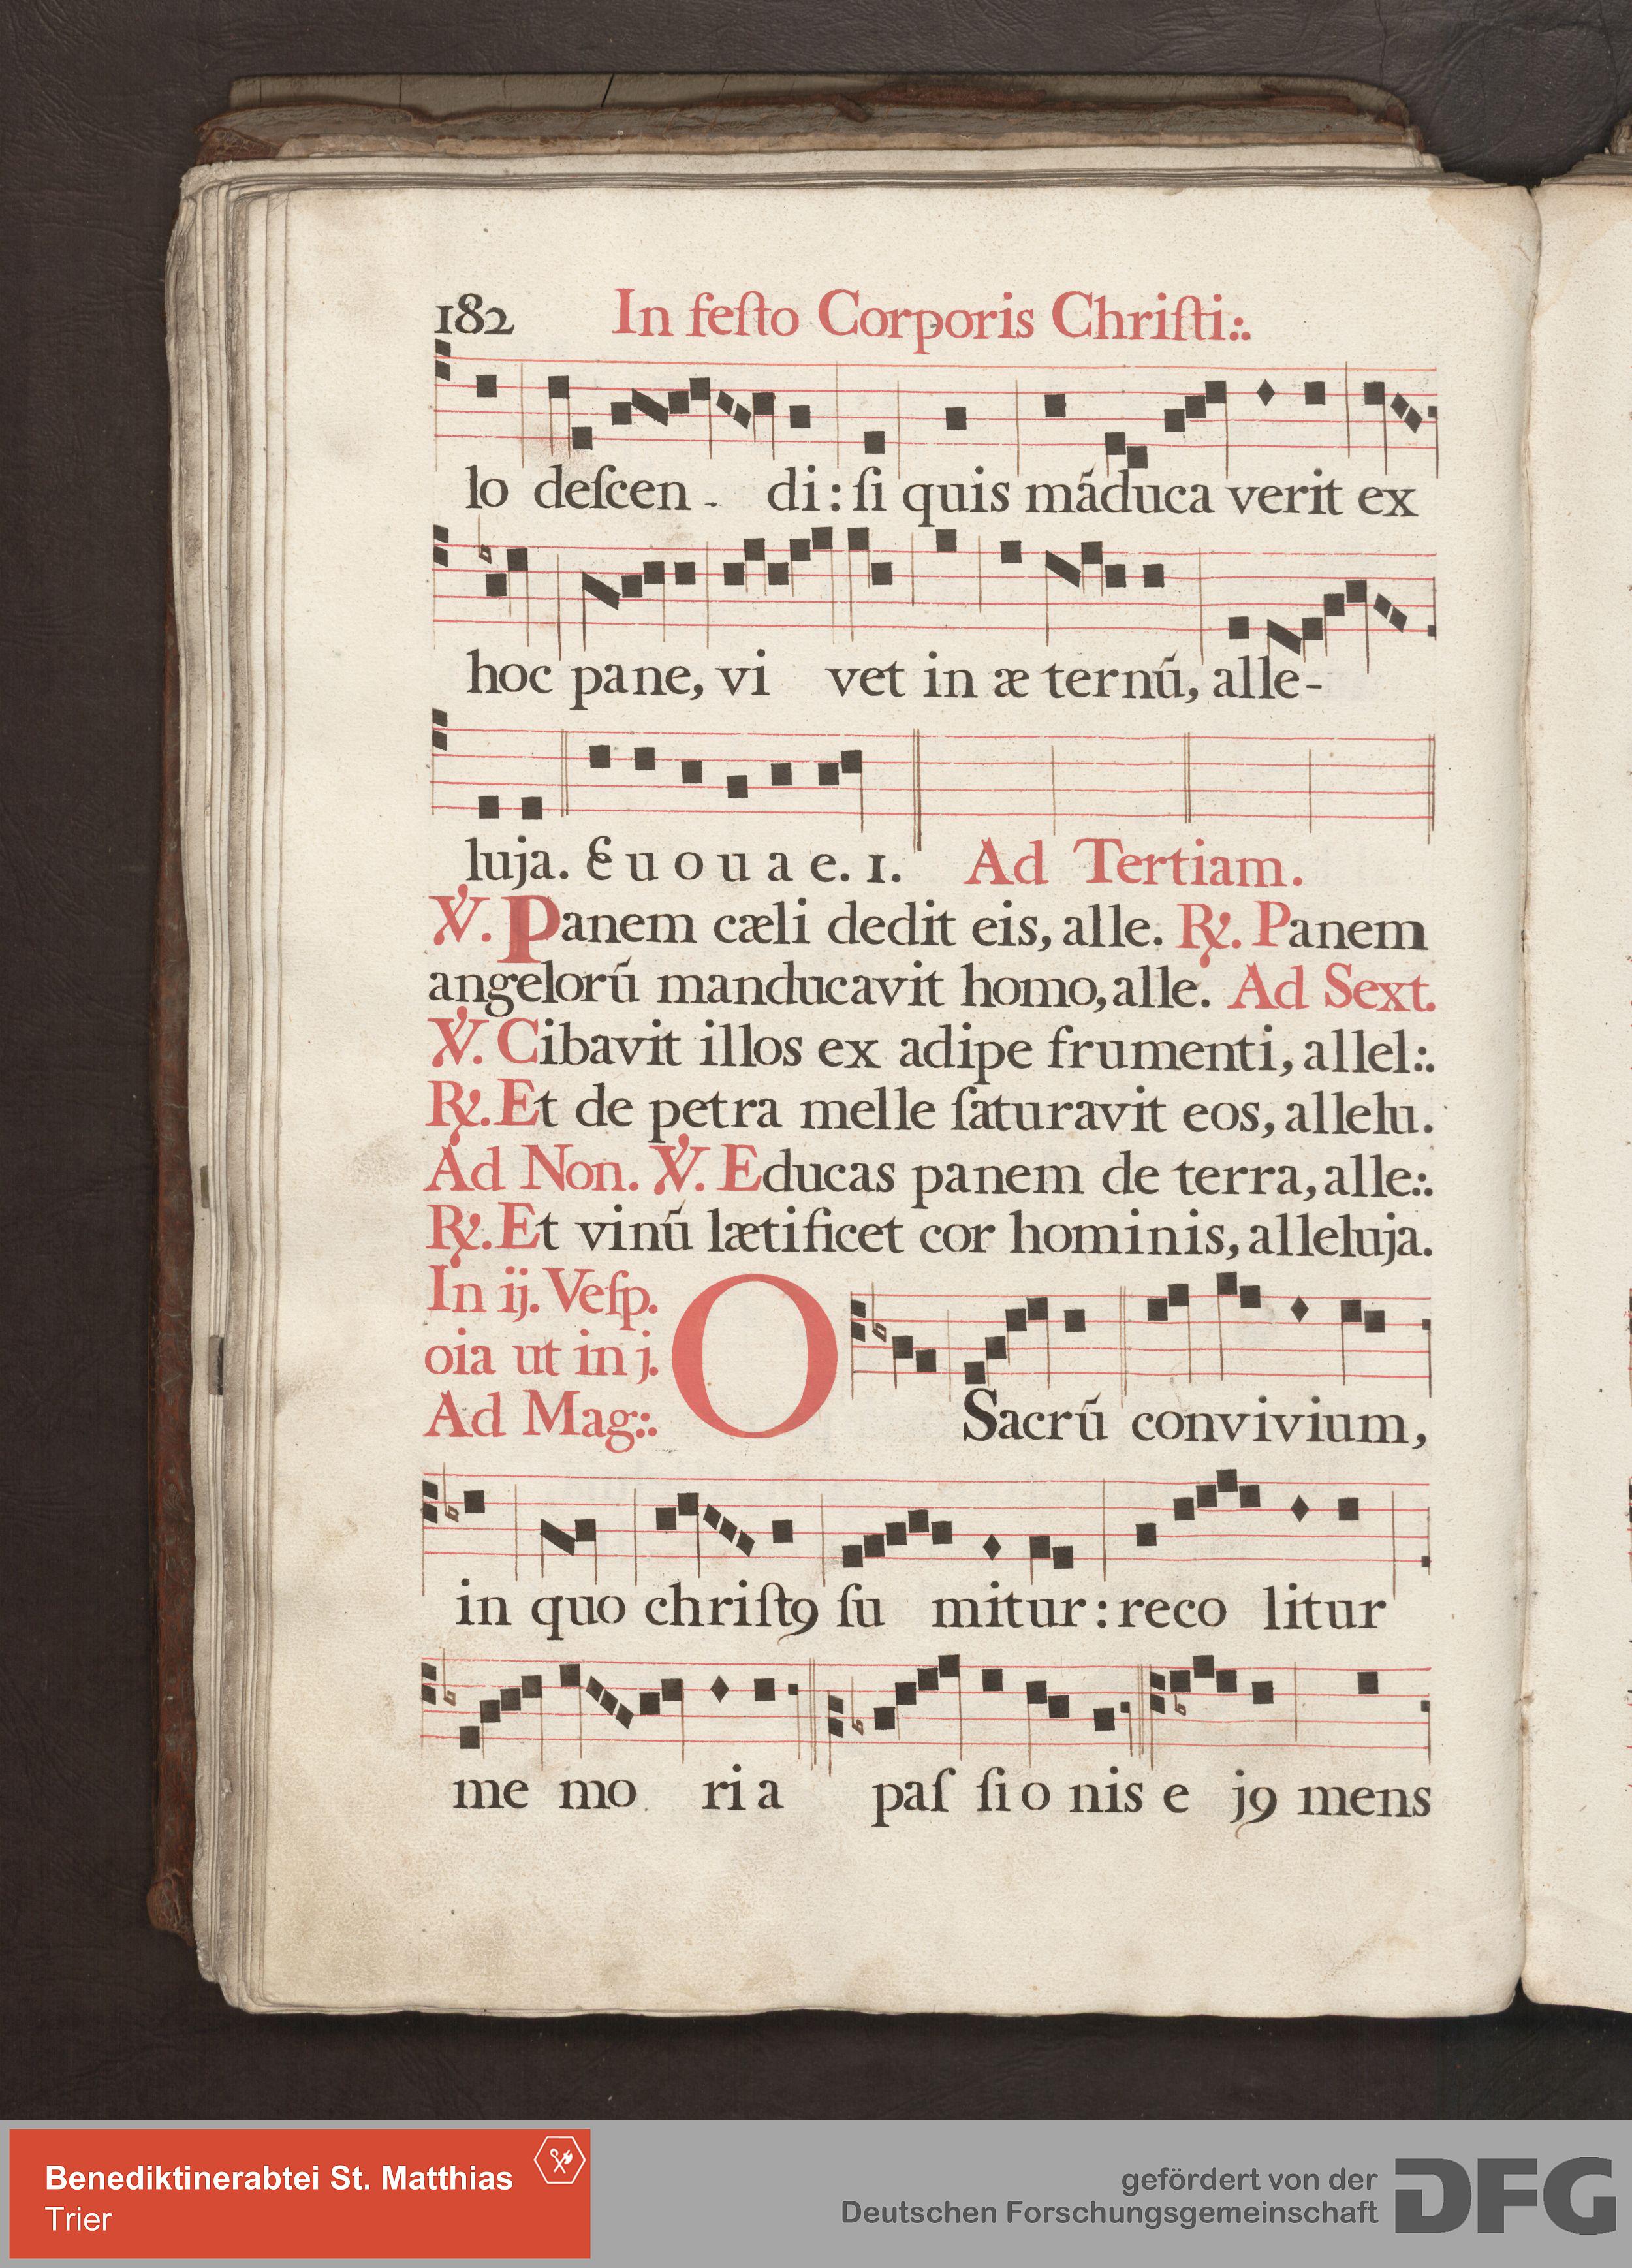 182 In feſto Corporis Chriſti:.
lo deſcen - di : ſi quis mãduca verit ex
hoc pane, vi vet in æ ternũ, alle-
luja. E u o u a e. 1. Ad Tertiam.
℣. Panem cæli dedit eis, alle. ℟. Panem
angelorũ manducavit homo, alle. Ad Sext.
℣. Cibavit illos ex adipe frumenti, allel:.
℟. Et de petra melle ſaturavit eos, allelu.
Ad Non. ℣. Educas panem de terra, alle:.
℟. Et vinũ lætificet cor hominis, alleluja.
In ij. Veſp.
oia ut in j.
Ad Mag:.
O Sacrũ convivium,
in quo chriſtꝯ ſu mitur : reco litur
me mo ri a paſ ſi o nis e jꝯ mens
Benediktinerabtei St. Matthias
Trier
gefördert von der
Deutschen Forschungsgemeinschaft
DFG